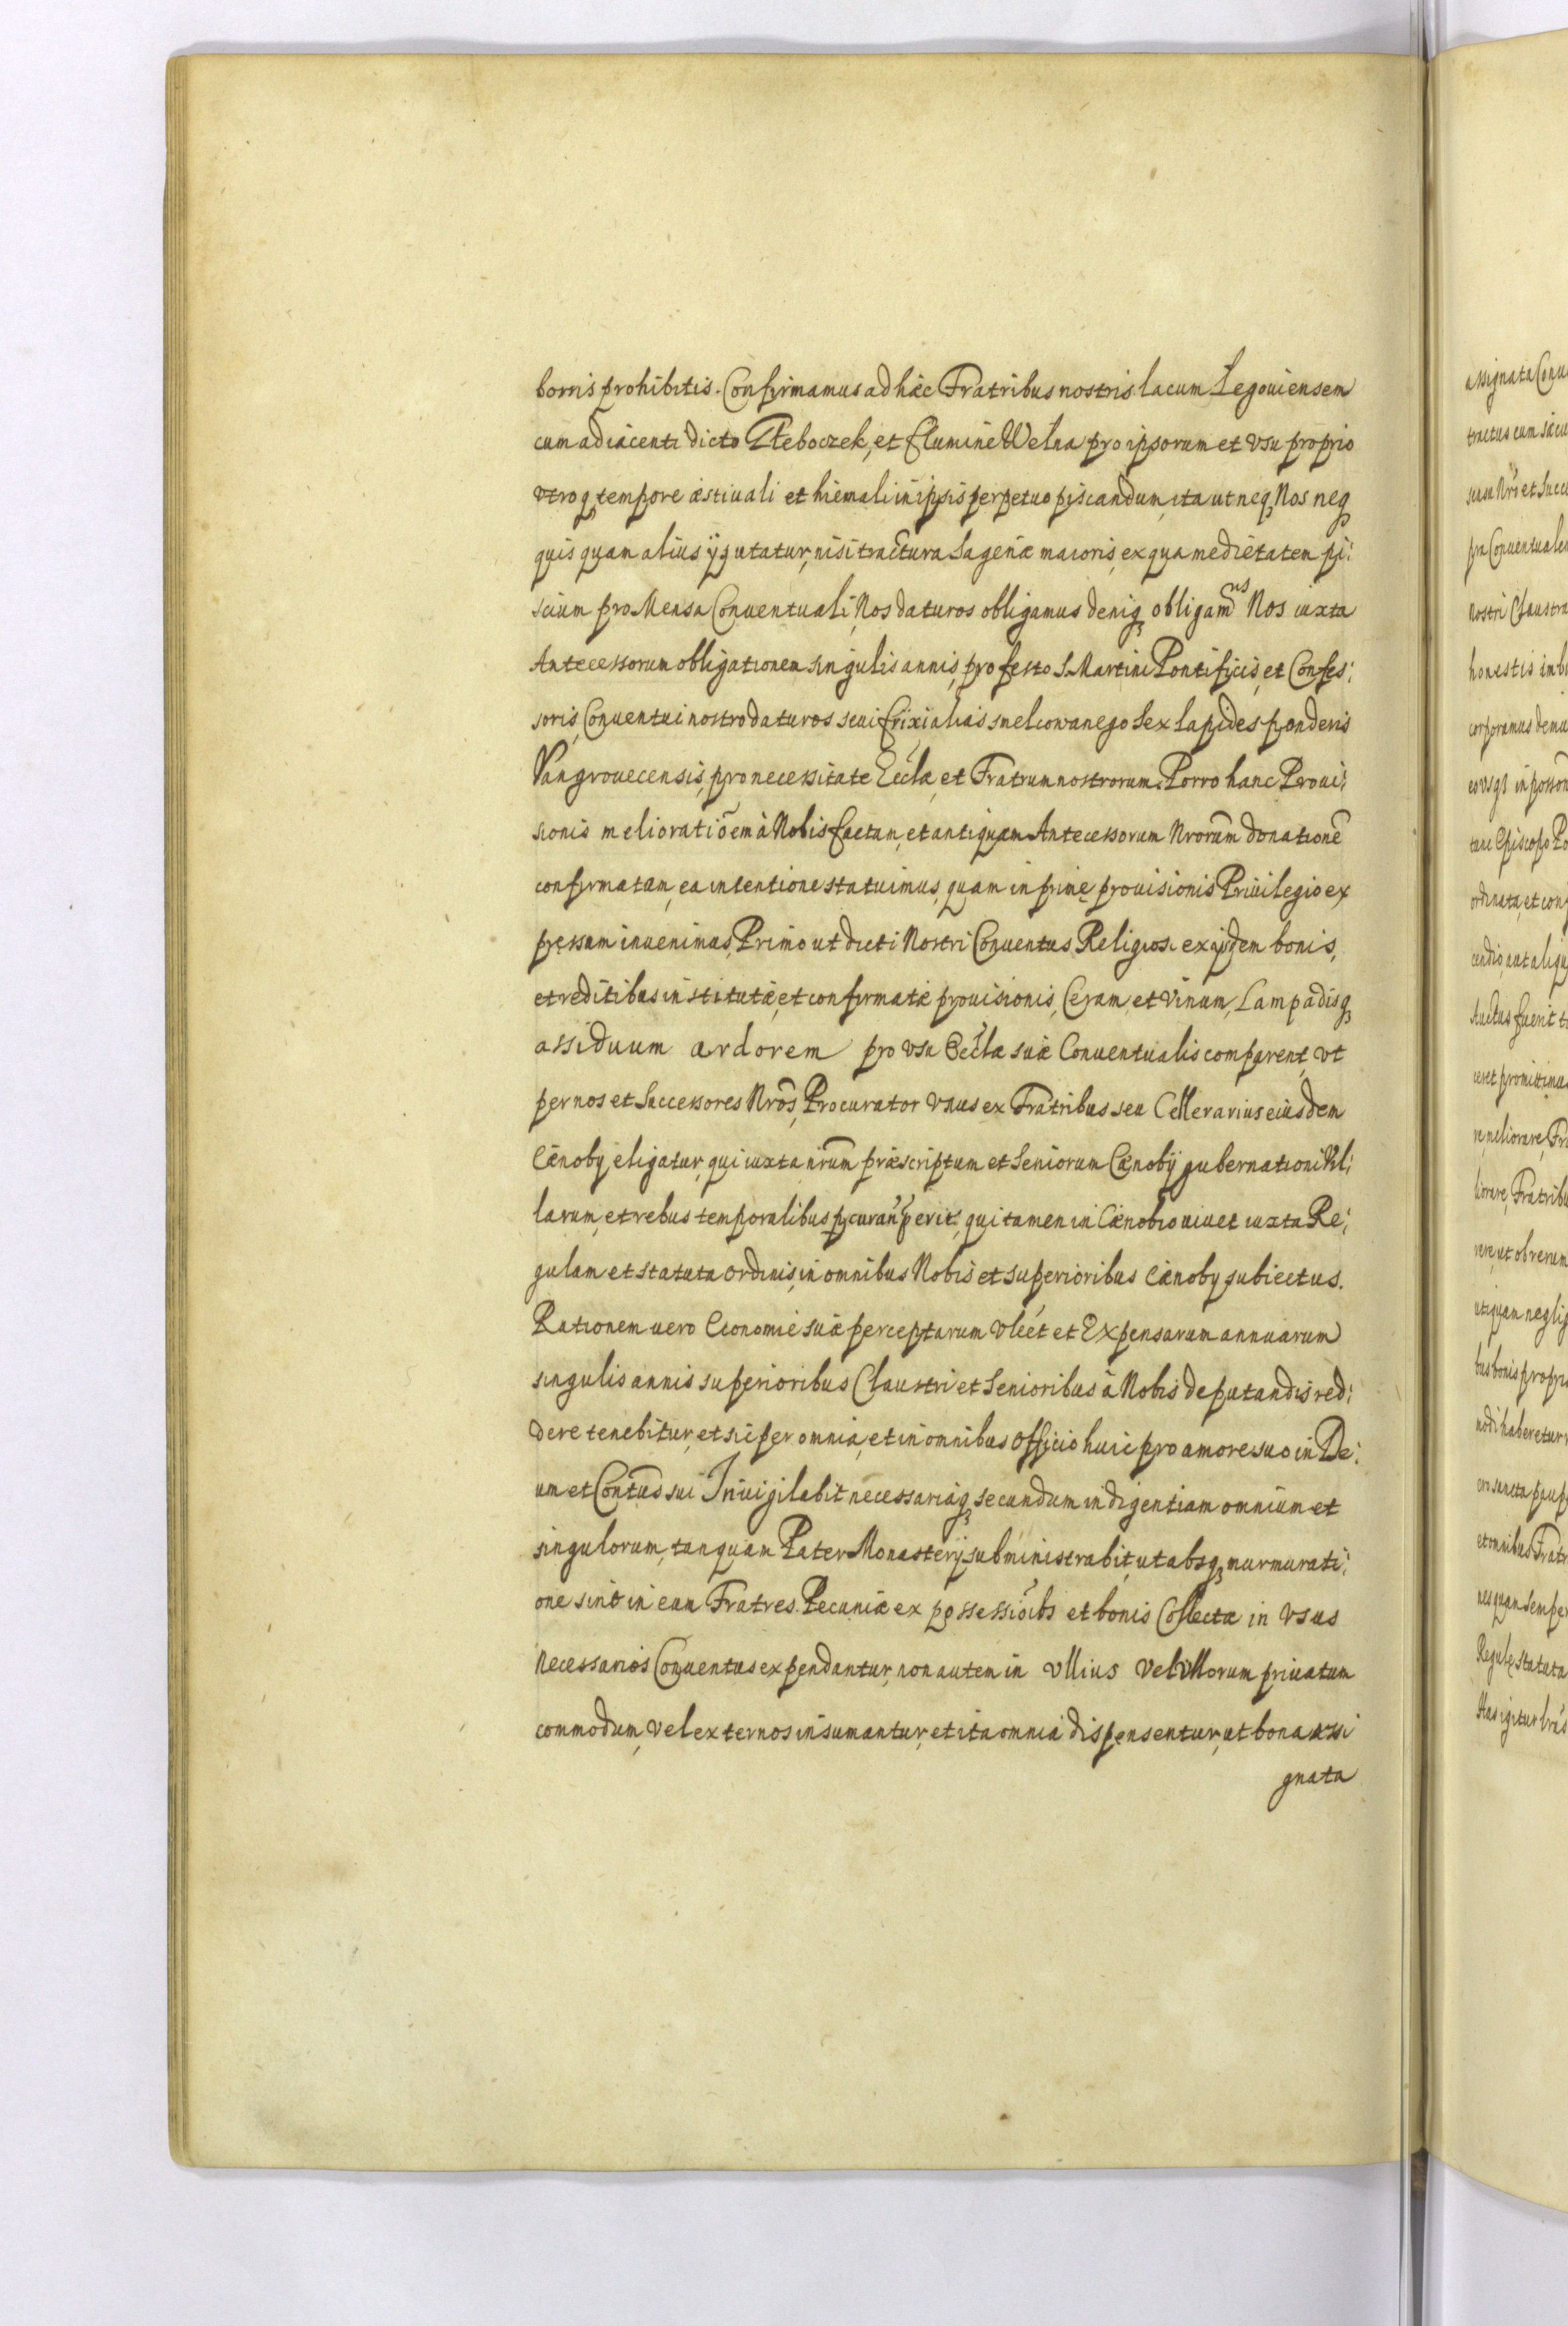 borris prohibitis. Confirmamus ad hæc Fratribus nostris lacum Legouiensem
cum adiacenti dicto Kłeboczek, et flumine Welna pro ipsorum et vsu proprio
vtroq; tempore æstiuali et hiemali in ipsis perpetuo piscandum, ita ut neq; Nos neq;
quisquam alius ijs utatur, nisi tractura Sagenæ maioris, ex qua medietatem pi:
scium pro Mensa Conuentuali, Nos daturos obligamus deniq; obligamus Nos iuxta
Antecessorum obligationem singulis annis, pro festo S. Martini Pontificis, et Confes:
soris, Conuentui nostro daturos seui frixi alias smelcowanego Sex Lapides ponderis
Vangrouecensis, pro necessitate Eccłæ, et Fratrum nostrorum. Porro hanc Proui:
sionis melioratiōem à Nobis factam, et antiquam Antecessorum Nrorum donationē
confirmatam, ea intentione statuimus, quam in primę prouisionis Priuilegio ex
pressam inuenimus, Primo ut dicti Nostri Conuentus Religiosi ex ijsdem bonis,
et reditibus institutæ, et confirmatæ prouisionis, Ceram, et Vinum, Lampadisq;
assiduum ardorem pro vsu Eccłæ suæ Conuentualis comparent, vt
per nos et Successores Nros, Procurator vnus ex Fratribus seu Cellerarius eiusdem
Cænobÿ eligatur, qui iuxta nrum præscriptum et Seniorum Cænobÿ gubernationi Vil:
larum, et rebus temporalibus, qui tamen in Cænobio uiuet iuxta Re:
gulam et statuta ordinis, in omnibus Nobis et superioribus Cænoby subiectus.
Rationem uero Economiæ suæ perceptarum et Expensarum annuarum
singulis annis superioribus Claustri et Senioribus à Nobis deputandis red:
dere tenebitur, et sic per omnia, et in omnibus officio huic pro amore suo in De:
um et Contus sui Inuigilabit necessariaq; secundum indigentiam omnium et
singulorum, tanquam Pater Monasterÿ subministrabit, ut absq; murmurati:
one sint in eum Fratres. Pecuniæ ex possessiōibs et bonis Collectæ in vsus
necessarios Conuentus expendantur, non autem in vllius vel vllorum priuatum
commodum, vel externos insumantur, et ita omnia dispensentur, ut bona assi
gnata
assignata Conue
tractus cum
suæ Nrō et Succ
pra Conuentuale
nostri Claustra
honestis imb
corporamus
tunc Episcopo Po
ordinata, et con
cendio, aut aliqu
ductus fuerit
ueret promittimus
re meliorare, Fra
liorare, Fratribu
rere, ut ob rerum
utiquam neglig
bus bonis propri
modi haberetur
et omnibus Fratr
ues quam Semper
Regulę statuta
Has igitur lras